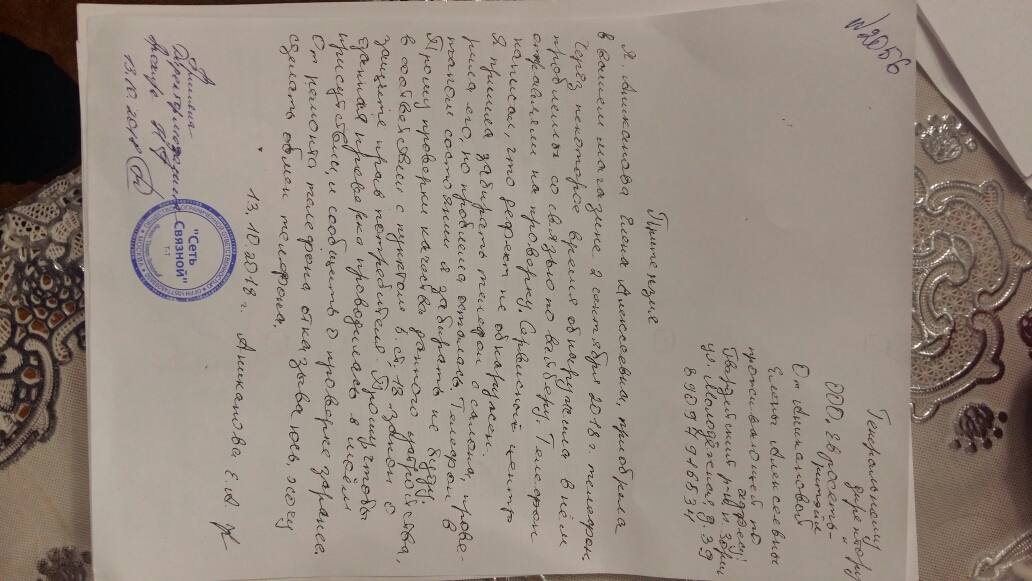 N2056
Генеральному
директору
ООО "Евросеть-
Ритейл"
От Аникановой
Елены Алексеевны
проживающей по
адресу:
ул. Молодёжная д 39
89097916534
Притензия
Я, Аниканова Елена Алексеевна, приобрела
в вашем магазине 2 сентября 2018 г. телефон
Через некоторое время обнаружила в нём
проблемы со связью по вайберу. Телефон
отправляли на проверку. Сервисный центр
написал, что дефект не обнаружен.
Я пришла забирать телефон с салона, прове-
рила его, но проблема осталась. Телефон в
таком состоянии я забирать не буду.
Прошу проверки качества данного устройства,
в соответствии с пунктом 5. ст. 18 закона о
защите прав потребителя. Прошу чтобы
данная проверка проводилась в моём
присутствии, и сообщить о проверке заранее.
От ремонта телефона отказываюсь, хочу
сделать обмен телефона.
13. 10. 2018 г. Аниканова Е.А.
Приняла
13.10.2018
"Сеть
Связной"
Т-Т